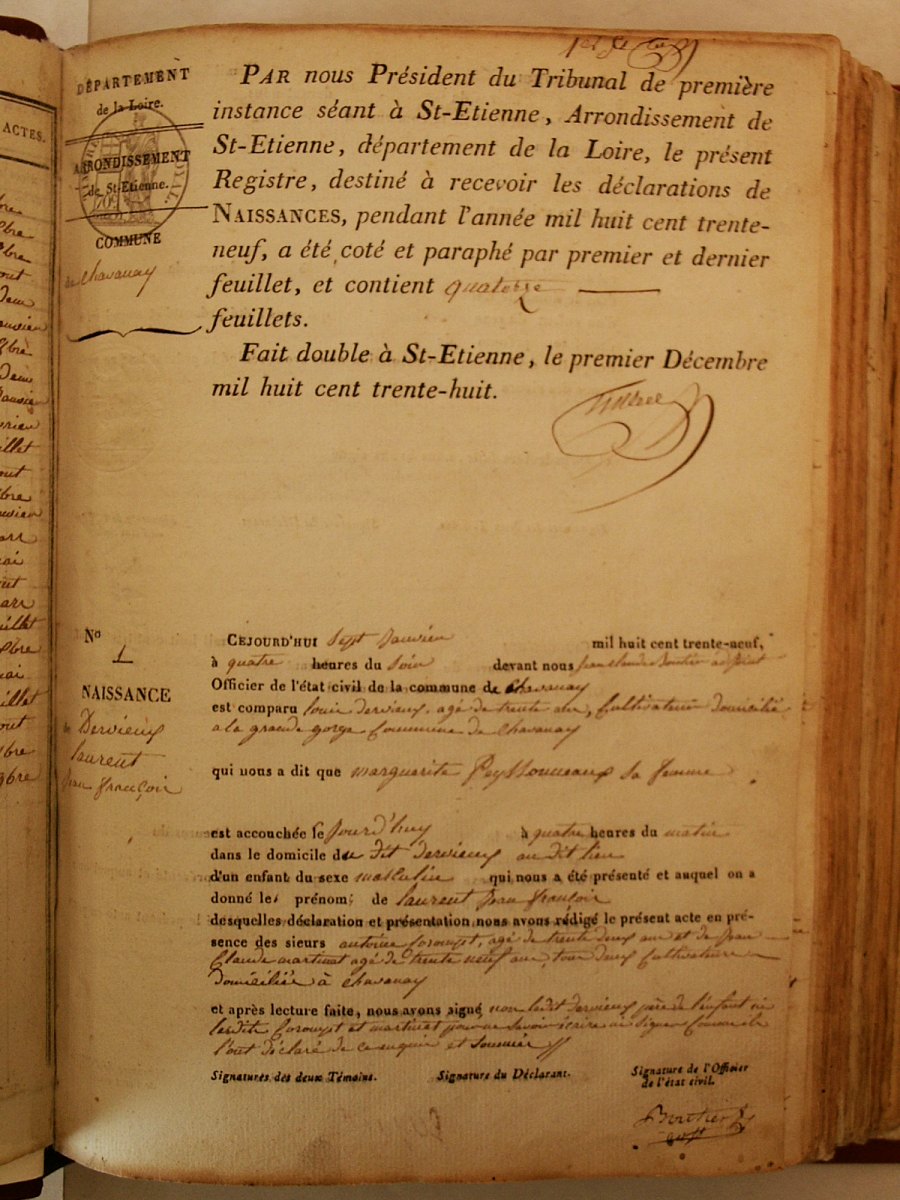 1er f
DÉPARTEMENT
de la Loire.
ARRONDISSEMENT
de St-Etienne.
COMMUNE
de Chavanay
PAR nous Président du Tribunal de première
instance séant à St-Etienne, Arrondissement de
St-Etienne, département de la Loire, le présent
Registre, destiné à recevoir les déclarations de
NAISSANCES, pendant l'année mil huit cent trente-
neuf, a été coté et paraphé par premier et dernier
feuillet, et contient quatorze
feuillets.
Fait double à St-Etienne, le premier Décembre
mil huit cent trente-huit.
ACTES.
No
1
NAISSANCE
de Dervieux
laurent
jean françois
CEJOURD'HUI sept janvier mil huit cent trente-neuf,
à quatre heures du soir devant nous adjoint
Officier de l'état civil de la commune de Chavanay
est comparu louis dervieux, agé de trente ans, Cultivateur domicilié
a la grande gorge Commune de Chavanay
qui nous a dit que marguerite Peyssonneaux sa femme
est accouchée le jourd'huy à quatre heures du matin
dans le domicile du dit dervieux au dit lieu
d'un enfant du sexe masculin qui nous a été présenté et auquel on a
donné les prénoms de laurent jean françois
desquelles déclaration et présentation nous avons rédigé le présent acte en pré-
sence des sieurs antoine, agé de trente deux ans et de jean
Claude martinat agé de trente neuf ans, tous deux Cultivateurs
domiciliés à Chavanay
et après lecture faite, nous avons signé non ledit dervieux père de l'enfant ni
lesdits et martinat pour ne savoir écrire ni signer Comme ils
l'ont déclaré de ce enquis et sommés
Signatures des deux Témoins.
Signature du Déclarant.
Signature de l'Officier
de l'état civil.